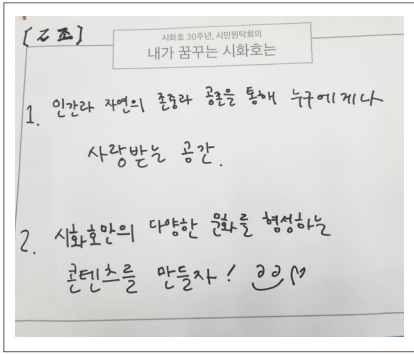 [ 2조 ]
시화호 30주년, 시민원탁회의
내가 꿈꾸는 시화호는
1. 인간과 자연의 존중과 공존을 통해 누구에게나
사랑받는 공간.
2. 시화호만의 다양한 문화를 형성하는
콘텐츠를 만들자!